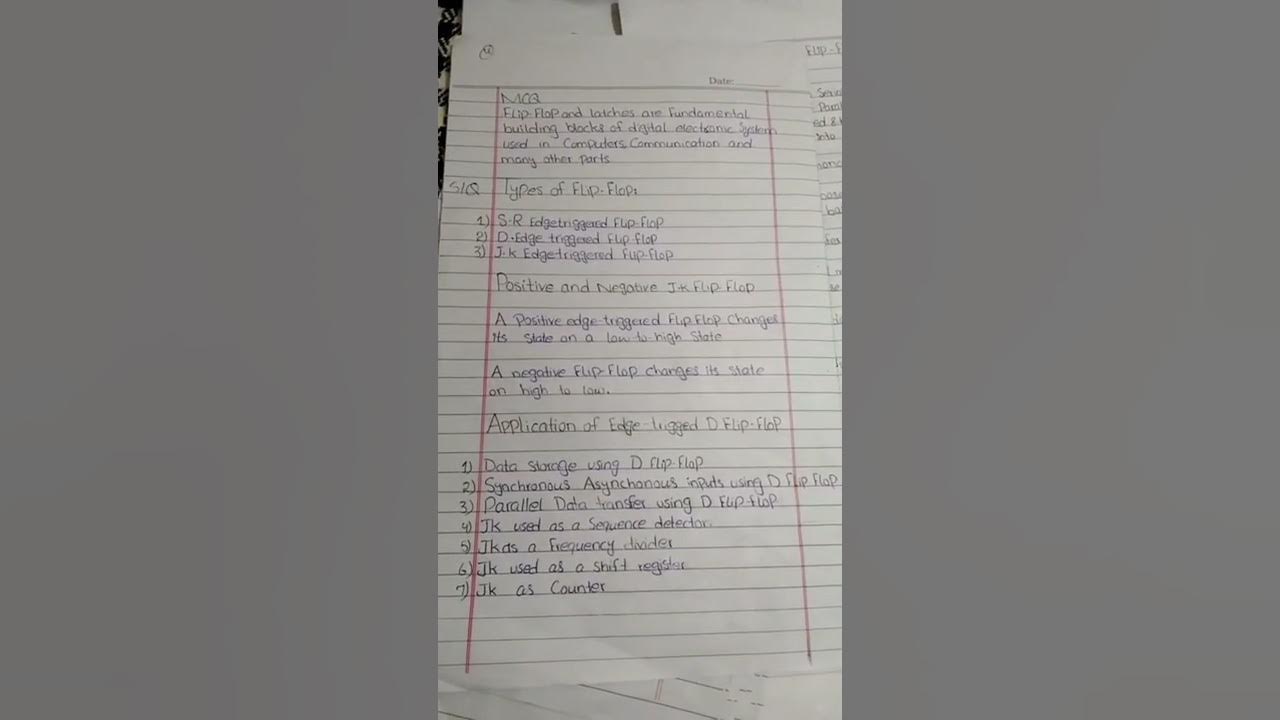 Date:
MCQ
Flip-Flop and latches are Fundamental
building blocks of digital electronic System
used in Computers, Communication and
many other parts
S/Q Types of Flip-Flop:
1) S-R Edgetriggered Flip-Flop
2) D-Edge triggered Flip-Flop
3) J-k Edgetriggered Flip-Flop
Positive and Negative J-k Flip-Flop
A Positive edge-triggered Flip Flop Changes
its State on a low to high State
A negative Flip-Flop changes its state
on high to low.
Application of Edge-trigged D Flip-Flop
1) Data Storage using D Flip-Flop
2) Synchronous Asynchonous inputs using D Flip Flop
3) Parallel Data transfer using D Flip-flop
4) Jk used as a Sequence detector.
5) Jk as a Frequency divider
6) Jk used as a shift register
7) Jk as Counter
Flip-f